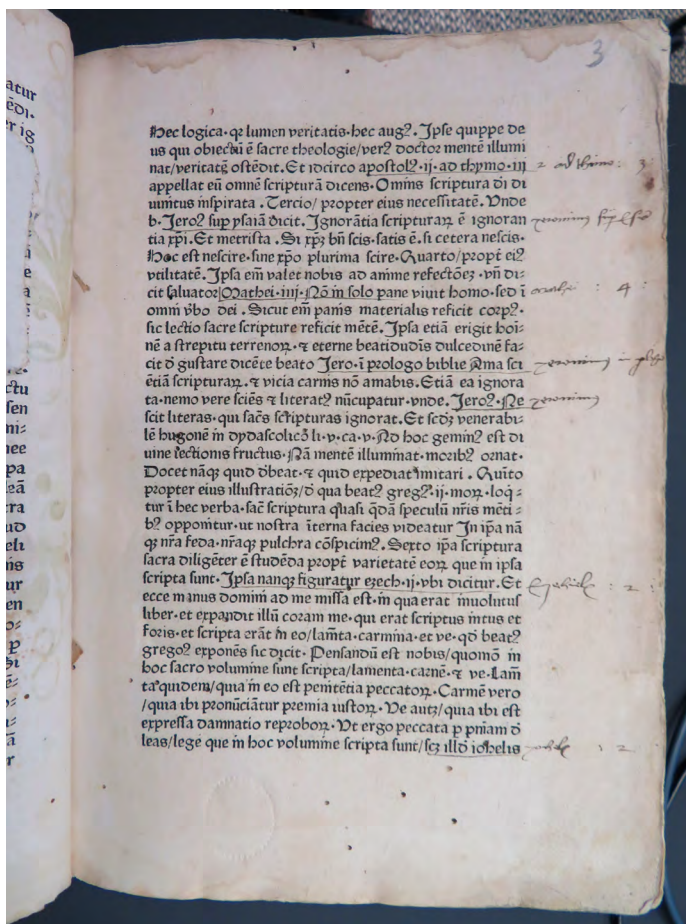 3
Hec logica·qꝛ lumen veritatis·hec augꝰ. Ipse quippe de
us qui obiectū ē sacre theologie/verꝰ doctor mentē illumi
nat/veritatē ostēdit. Et idcirco apostolꝰ·ij·ad thymo·iij
2 ad thimo : 3
appellat eū omnē scripturā dicens·Omnis scriptura dī di
uinitus inspirata . Tercio/ propter eius necessitatē. Unde
b·Jeroꝰ sup ysaiā dicit. Ignorātia scripturaꝝ ē ignoran
tia xp̄i. Et metrista . Si xp̄ꝫ bn̄ scis·satis ē·si cetera nescis·
Hoc est nescire·sine xp̄o plurima scire·Quarto/propt̄ eiꝰ
vtilitatē. Ipsa em̄ valet nobis ad anime refectōeꝫ·vn̄ di-
cit saluator/Mathei·iiij·Nō in solo pane viuit homo·sed ī
: 4
omni v̄bo dei . Sicut em̄ panis materialis reficit corpꝰ·
sic lectio sacre scripture reficit mētē. Ipsa etiā erigit hoi-
nē a strepitu terrenoꝝ·⁊ eterne beatidudīs dulcedinē fa-
cit d̄ gustare dicēte beato Jero·ī prologo biblie Ama sci
zeronimus in
ētiā scripturaꝝ·⁊ vicia carnis nō amabis·Etiā ea ignora
ta·nemo vere sciēs ⁊ literatꝰ nūcupatur·vnde. Jeroꝰ·Ne
zeronimus
scit literas·qui sac̄s scripturas ignorat. Et scd̄ꝫ venerabi-
lē hugonē in dydascolicō li·v·ca·v·Ad hoc geminꝰ est di
uine lectionis fructus·Nā mentē illuminat·moribꝰ ornat·
Docet nāqꝫ quid d̄beat·⁊ quid expediat imitari . Quīto
propter eius illustratiōꝫ/d̄ qua beatꝰ gregꝰ·ij·moꝝ·loqͥ-
tur ī hec verba·sac̄ scriptura quasi qd̄ā speculū nr̄is mēti-
bꝰ opponitur·ut nostra īterna facies videatur In ip̄a nā
qꝫ nr̄a feda·nr̄aqꝫ pulchra cōspicimꝰ. Sexto ip̄a scriptura
sacra diligēter ē studēda propt̄ varietatē eoꝝ que in ipsa
scripta sunt·Ipsa nanqꝫ figuratur ezech·ij·vbi dicitur. Et
: 2 :
ecce manus domini ad me missa est·in qua erat inuolutus
liber·et expandit illū coram me·qui erat scriptus intus et
foris·et scripta erāt in eo/lam̄ta·carmina·et ve·qd̄ beatꝰ
gregoꝰ exponēs sic dicit· Pensandū est nobis/quomō in
hoc sacro volumine sunt scripta/lamenta·carnē·⁊ ve·Lam̄
ta quidem/quia in eo est penitētia peccatoꝝ·Carmē vero
/quia ibi pronūciātur premia iustoꝝ·Ve autꝫ/quia ibi est
expressa damnatio reproboꝝ·Ut ergo peccata p pniam d̄
leas/lege que in hoc volumine scripta sunt/scꝫ illd̄ iohelis
: 2